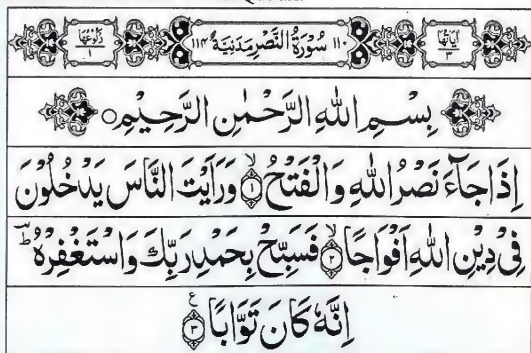 رکوعها ۱ ۱۱۰ سُوْرَةُ النَّصْرِ مَدَنِيَّةٌ ۱۱۴ اٰيَاتُهَا ۳
بِسْمِ اللهِ الرَّحْمٰنِ الرَّحِيْمِ ○
اِذَا جَآءَ نَصْرُ اللهِ وَالْفَتْحُ ۙ۱ وَرَاَيْتَ النَّاسَ يَدْخُلُوْنَ
فِيْ دِيْنِ اللهِ اَفْوَاجًا ۙ۲ فَسَبِّحْ بِحَمْدِ رَبِّكَ وَاسْتَغْفِرْهُ ؕ
اِنَّهٗ كَانَ تَوَّابًا ۳ ع